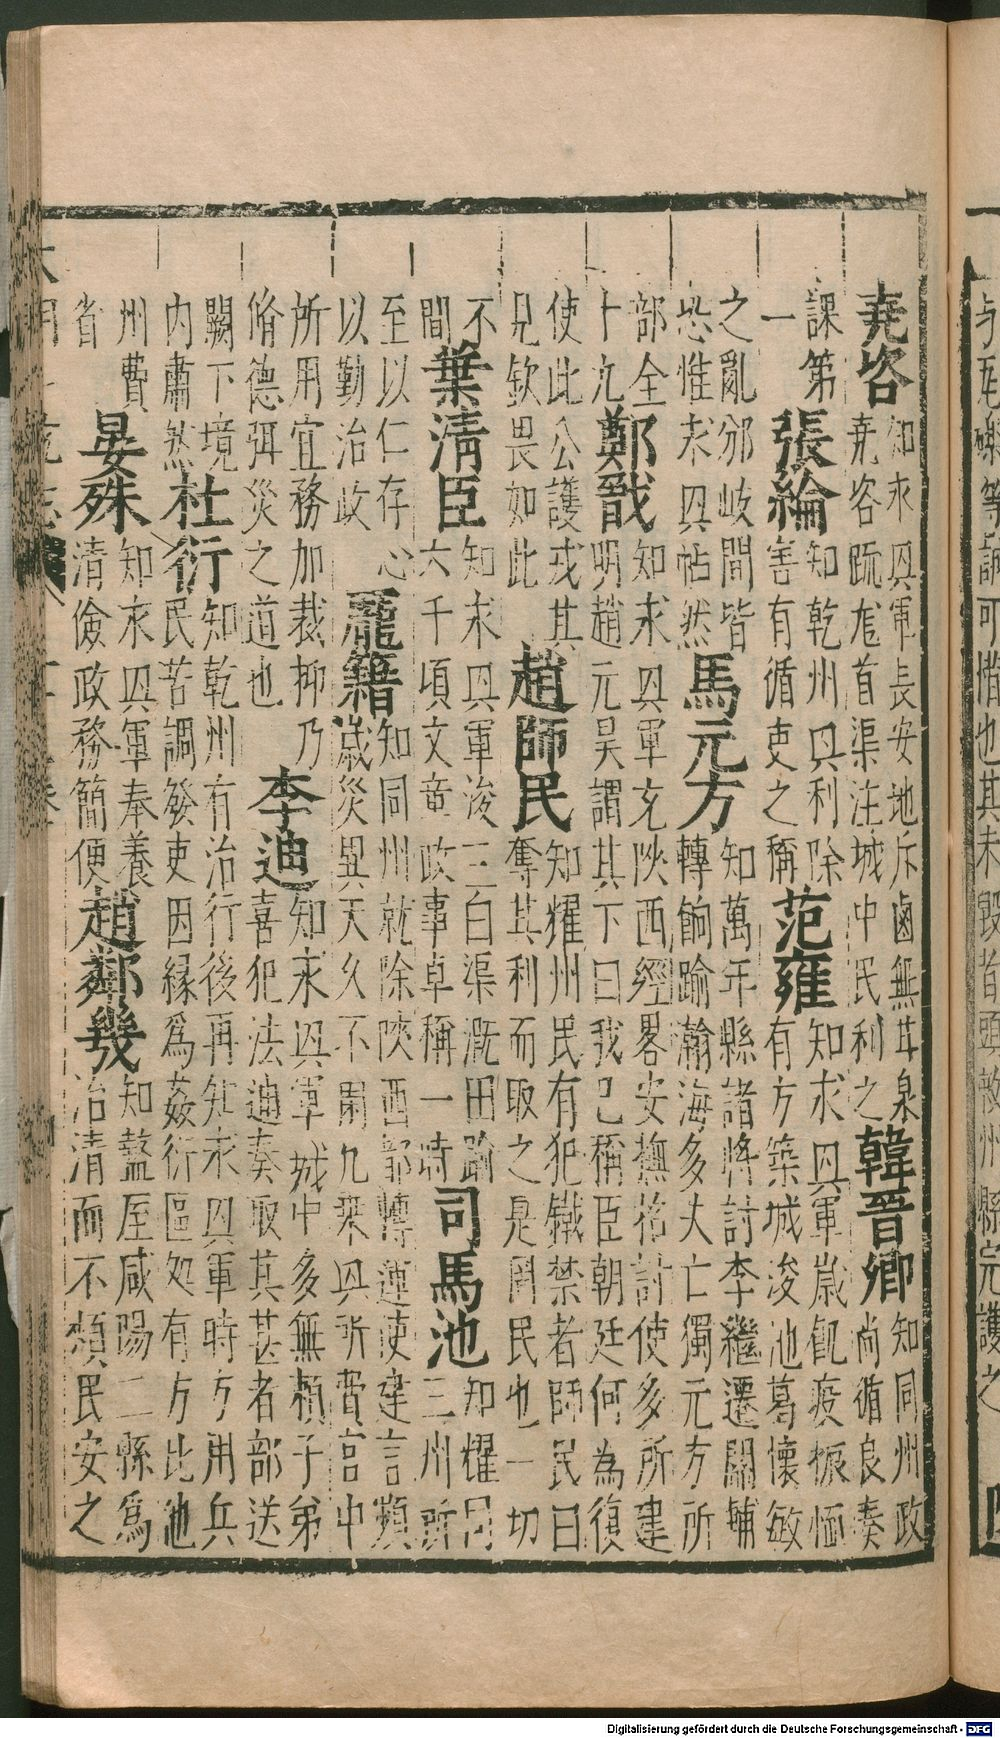 堯咨
知永興軍長安地斥鹵無甘泉
堯咨疏龍首渠注城中民利之
韓晉卿
知同州政
尚循良奏
課第
一
張綸
知乾州興利除
害有循吏之稱
范雍
知永興軍歲飢疫振恤
有方築城浚池葛懷敏
之亂邠岐間皆
恐惟永興帖然
馬元方
知萬年縣諸將討李繼遷關輔
轉餉踰瀚海多失亡獨元方所
部全
十九
鄭戩
知永興軍充陝西經畧安撫招討使多所建
明趙元昊謂其下曰我已稱臣朝廷何為復
使此公護戎其
見欽畏如此
趙師民
知耀州民有犯鐵禁者師民曰
奪其利而取之是罔民也一切
不
間
葉清臣
知永興軍浚三白渠溉田踰
六千頃文章政事卓稱一時
司馬池
知耀同
三州所
至以仁存心
以勤治政
龐籍
知同州就除陝西都轉運使建言頻
歲災異天久不雨凡乘輿所費宮中
所用宜務加裁抑乃
脩德弭災之道也
李迪
知永興軍城中多無頼子弟
喜犯法迪奏取其甚者部送
闕下境
內肅然
杜衍
知乾州有治行後再知永興軍時方用兵
民苦調發吏因緣爲姦衍區処有方比他
州費
省
晏殊
知永興軍奉養
清儉政務簡便
趙鄰幾
知盩厔咸陽二縣爲
治清而不煩民安之
Digitalisierung gefördert durch die Deutsche Forschungsgemeinschaft - DFG